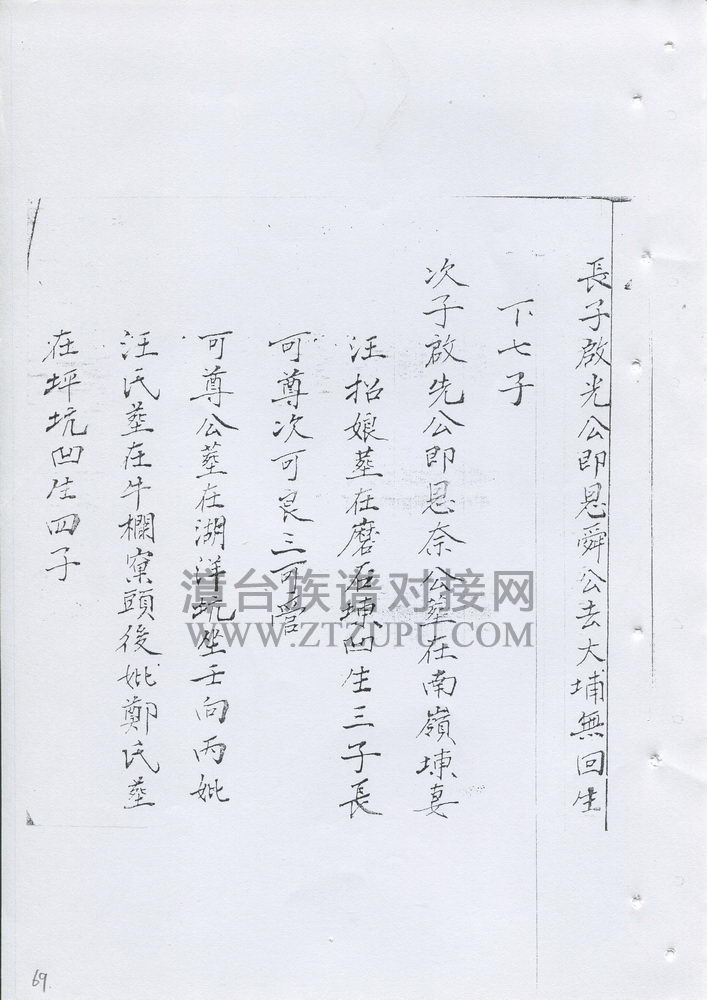 長子啟光公即恩舜公去大埔無回生
下七子
次子啟先公即恩奈公墓在南嶺埬妻
汪招娘墓在磨石埬凹生三子長
可尊次可良三可營
可尊公墓在湖洋坑坐壬向丙妣
汪氏墓在牛欄寮頭後妣鄭氏墓
在坪坑凹生四子
漳台族谱对接网
WWW.ZTZUPU.COM
69.